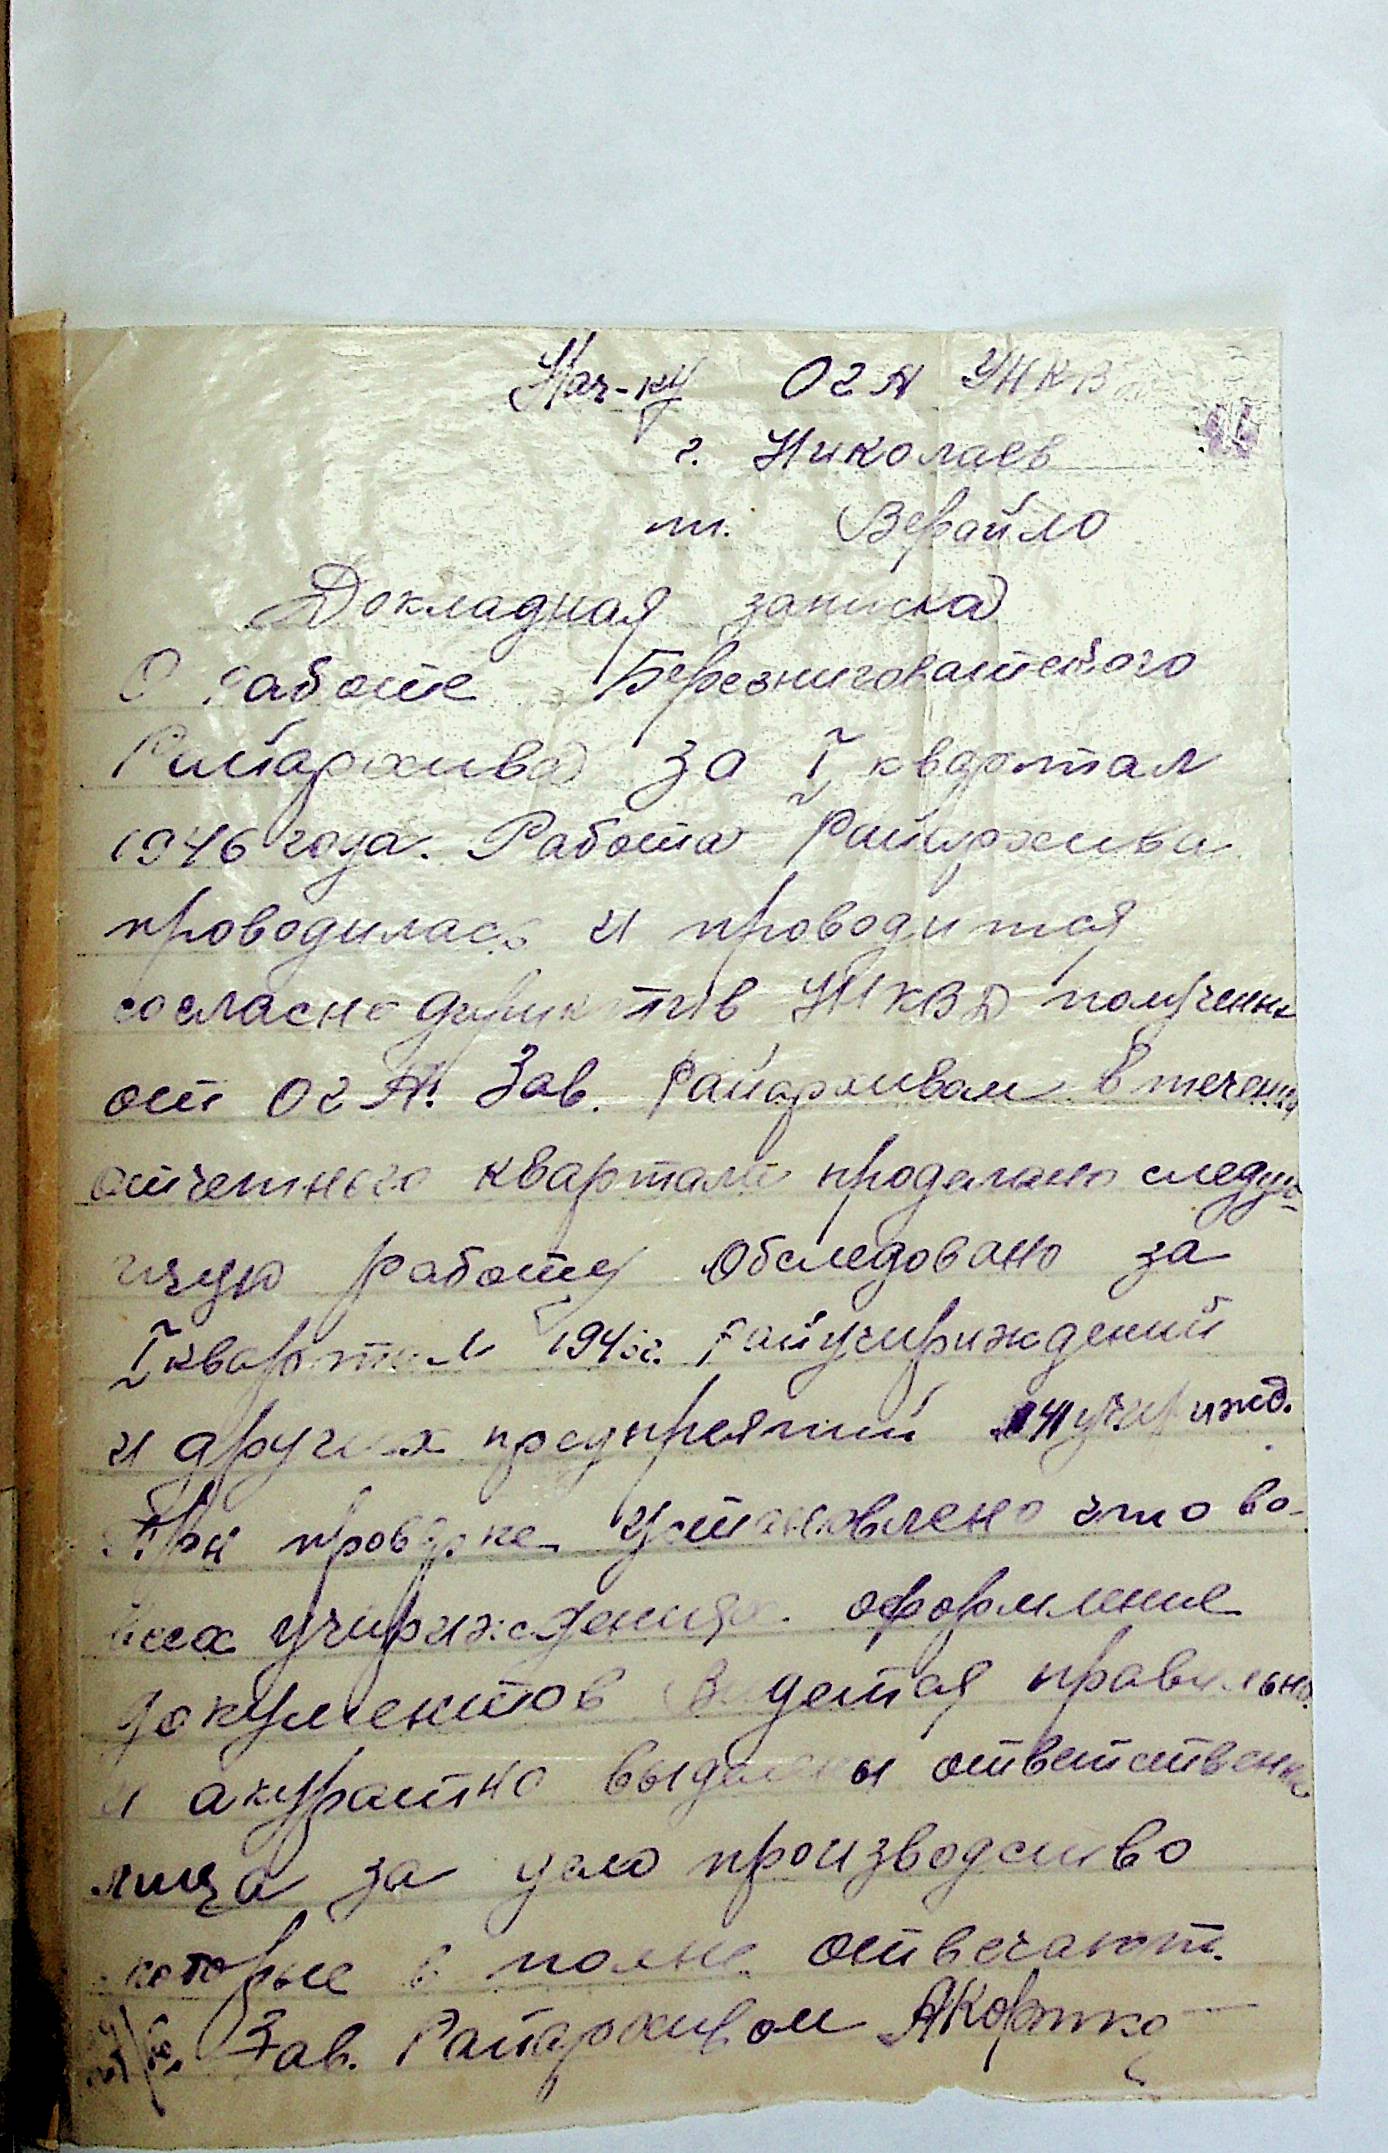 Нач-ку ОГА УНКВД
г. Николаев
т. Верайло
Докладная записка
О работе Березниговатского
Райархива за I квартал
1946 года. Работа Райархива
проводилась и проводится
согласно дериктив НКВД полученых
от ОГА. Зав. Райархивом в течении
отчетного квартала проделано следую-
щую работу Обследовано за
I квартал 1946г. Райучириждений
и других предпреятий 41 учирижд.
При проверке установлено что во-
всех учириждениях оформление
документов ведется правильно
и акуратно выделены ответственые
лица за дело производство
которые в полне отвечают.
Зав. Райархивом АКоротко